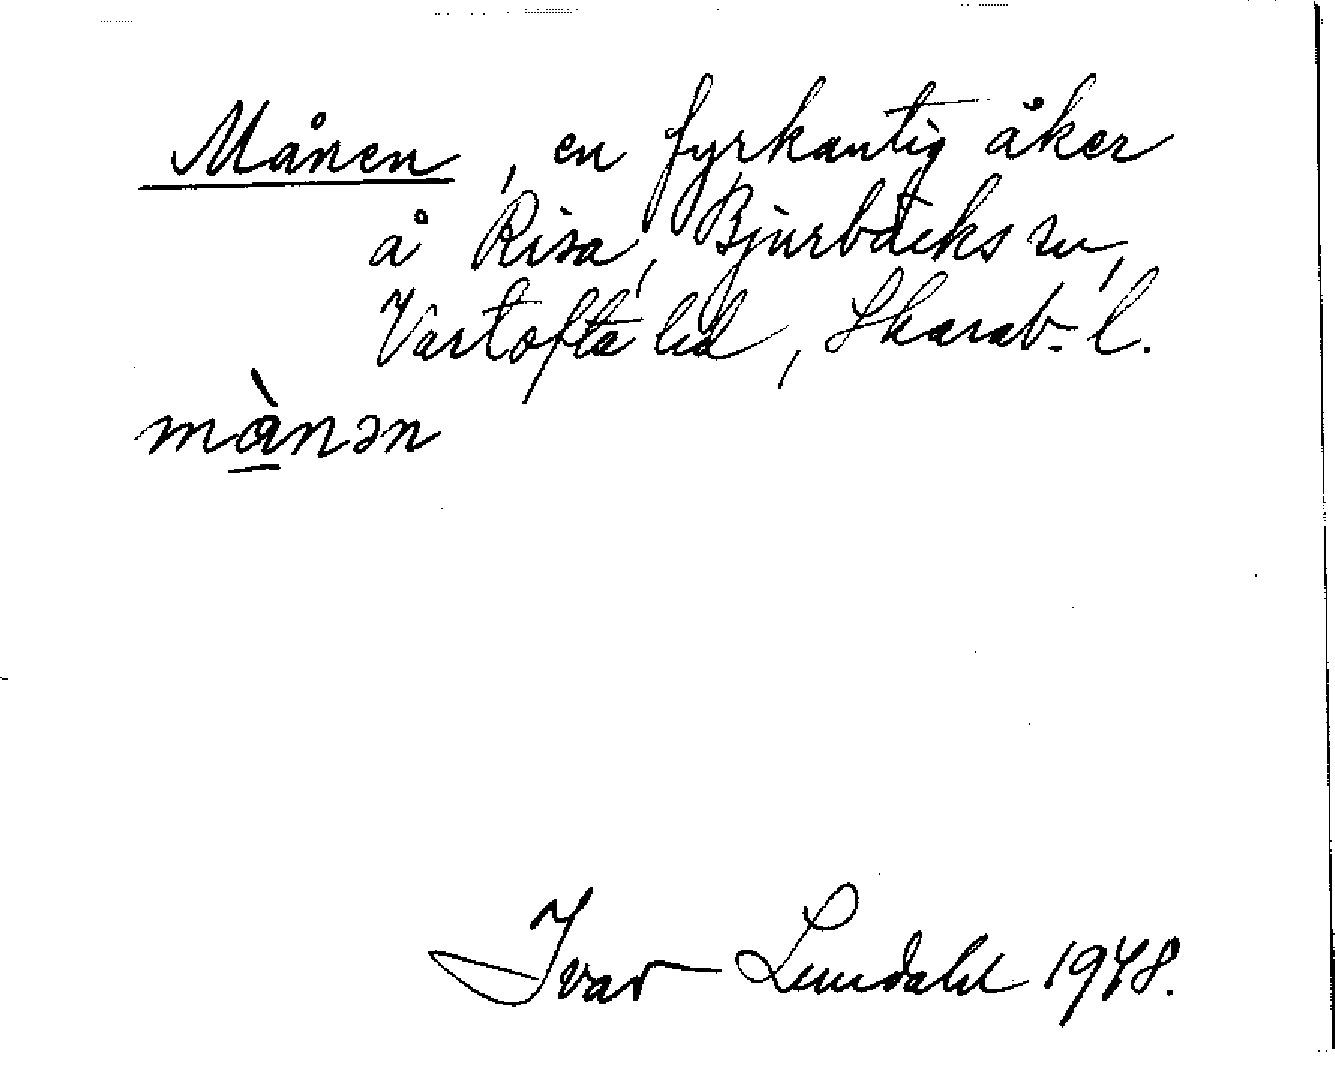 Månen, en fyrkantig åker
å Risa, Bjurbäcks sn,
Vartofta hd, Skarab. l.
mànən
Ivar Lundahl 1948.